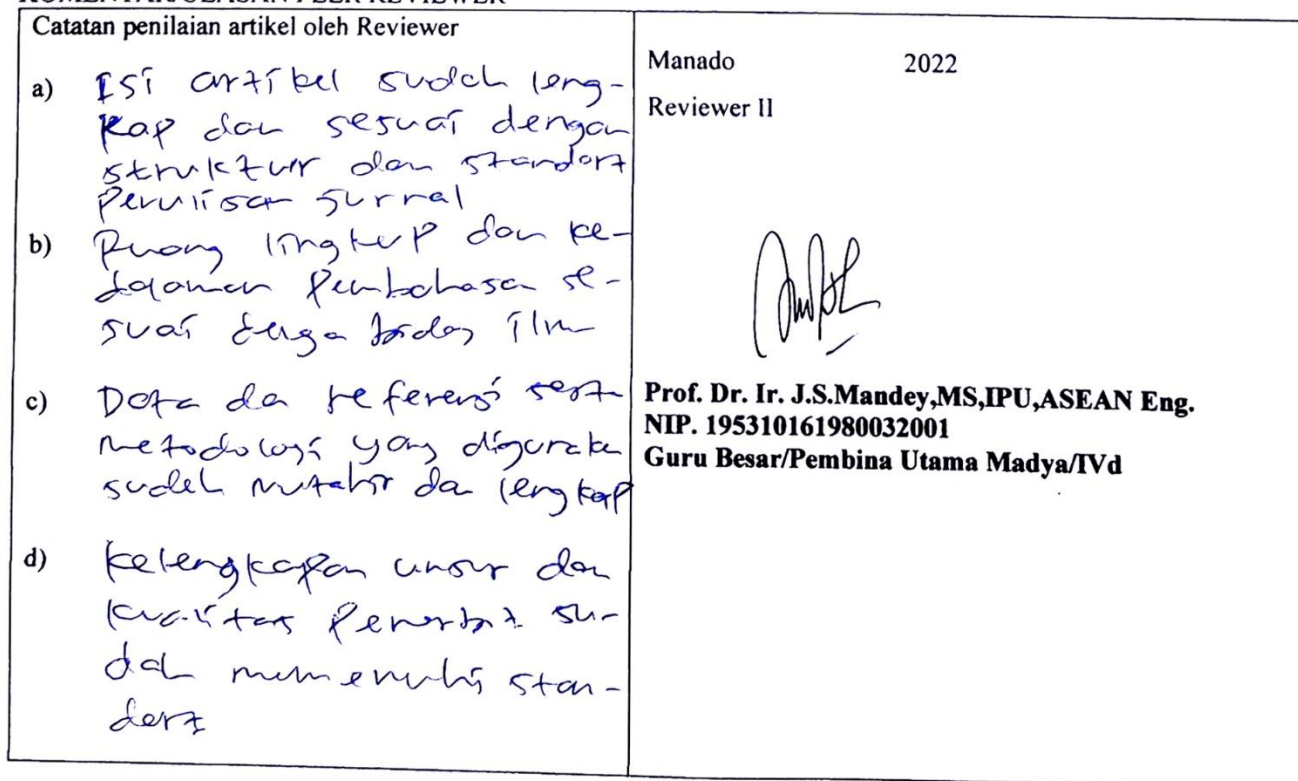 KOMENTAR/ULASAN PEER REVIEWER
Catatan penilaian artikel oleh Reviewer
a) Isi artikel sudah leng-
kap dan sesuai dengan
struktur dan standart
penulisan Jurnal
b) Ruang lingkup dan ke-
dalaman pembahasan se-
suai dengan bidang ilmu
c) Data dan referensi serta
metodologi yang digunakan
sudah mutahir dan lengkap
d) Kelengkapan unsur dan
kualitas Penerbit su-
dah memenuhi stan-
dart
Manado 2022
Reviewer II
Prof. Dr. Ir. J.S.Mandey,MS,IPU,ASEAN Eng.
NIP. 195310161980032001
Guru Besar/Pembina Utama Madya/IVd